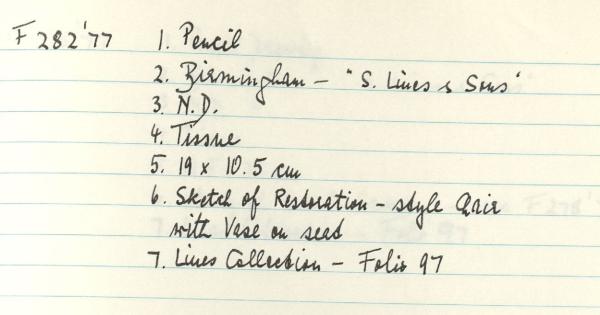 F 282'77 1. Pencil
2. Birmingham - "S. Lines & Sons"
3. N.D.
4. Tissue
5. 19 x 10.5 cm
6. Sketch of Restoration - style Chair
with Vase on seat
7. Lines Collection - Folio 97